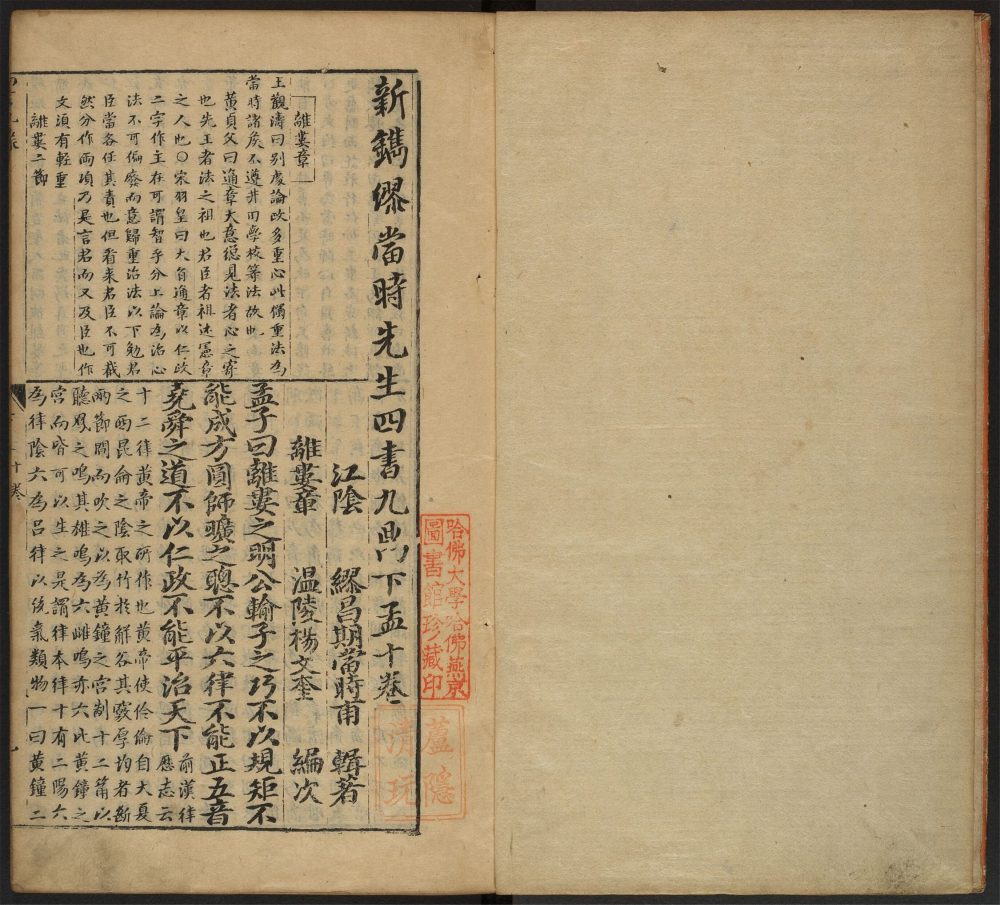 新鐫繆當時先生四書九鼎下孟十卷
江陰 繆昌期當時甫 輯著
離婁章 溫陵楊文奎 編次
離婁章
王觀濤曰別處論政多重心此獨重法為
當時諸矦不遵井田學校等法故也
黃貞父曰通章大意總見法者心之寄
也先王者法之祖也君臣者祖述憲章
之人也〇宋羽皇曰大旨通章以仁政
二字作主在可謂智乎分上論為治心
法不可偏廢而意歸重治法以下勉君
臣當各任其責也但看來君臣不可截
然分作兩項乃是言君而又及臣也作
文須有輕重
離婁二節
孟子曰離婁之明公輸子之巧不以規矩不
能成方圓師曠之聰不以六律不能正五音
堯舜之道不以仁政不能平治天下
前漢律
歷志云
十二律黃帝之所作也黃帝使伶倫自大夏
之西昆侖之陰取竹於解谷其竅厚均者斷
兩節間而吹之以為黃鐘之宮制十二筩以
聽鳳之鳴其雄鳴為六雌鳴亦六比黃鐘之
宮而皆可以生之是謂律本律十有二陽六
為律陰六為呂律以統氣類物一曰黃鐘二
十卷
哈佛大學哈佛燕京
圖書館珍藏印
蘆隱
清玩